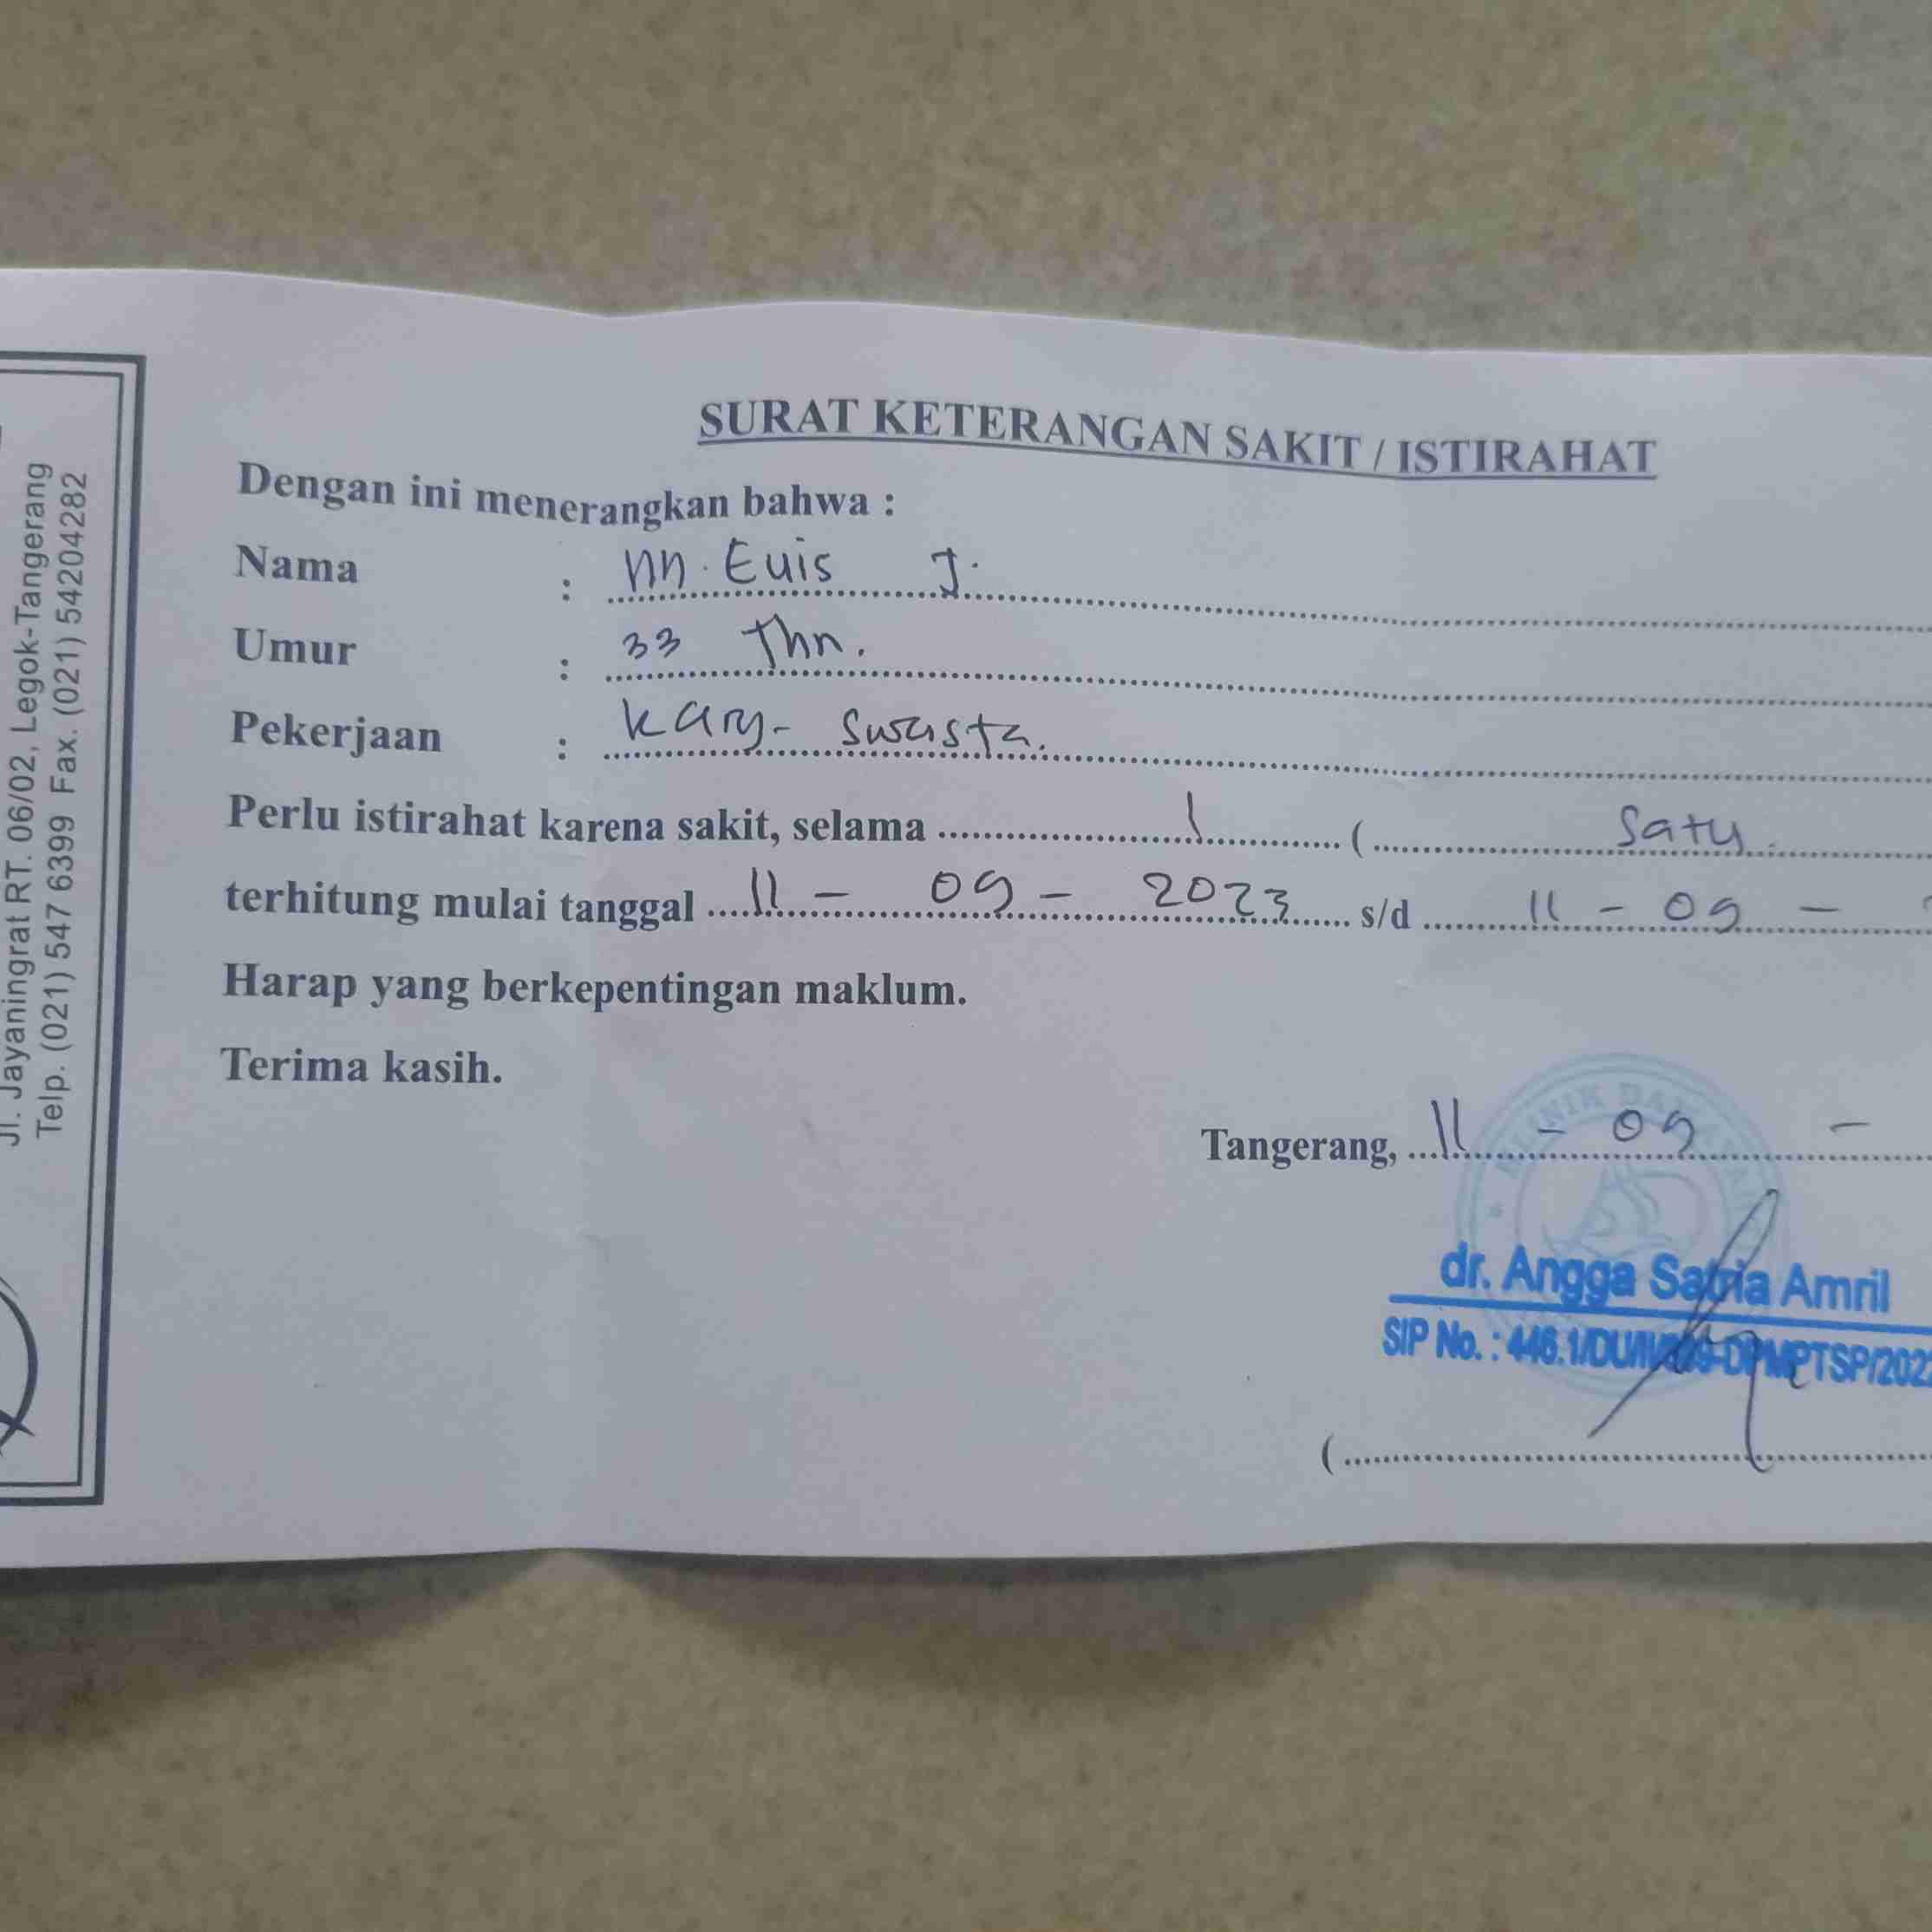 Jl. Jayaningrat RT. 06/02, Legok-Tangerang
Telp. (021) 547 6399 Fax. (021) 54204282
SURAT KETERANGAN SAKIT / ISTIRAHAT
Dengan ini menerangkan bahwa :
Nama : Nn. Euis J.
Umur : 33 Thn.
Pekerjaan : Kary- Swasta.
Perlu istirahat karena sakit, selama 1 ( Satu
terhitung mulai tanggal 11 - 09 - 2023 s/d 11 - 09 -
Harap yang berkepentingan maklum.
Terima kasih.
Tangerang, 11 - 09 -
KLINIK
dr. Angga Satria Amril
SIP No. :
(